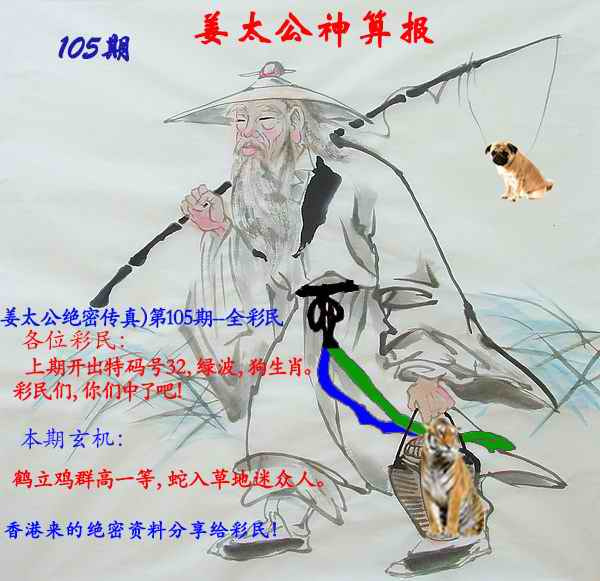 姜太公神算报
105期
姜太公绝密传真)第105期--全彩民
各位彩民:
上期开出特码号32,绿波,狗生肖。
彩民们,你们中了吧!
本期玄机:
鹤立鸡群高一等,蛇入草地迷众人。
香港来的绝密资料分享给彩民!